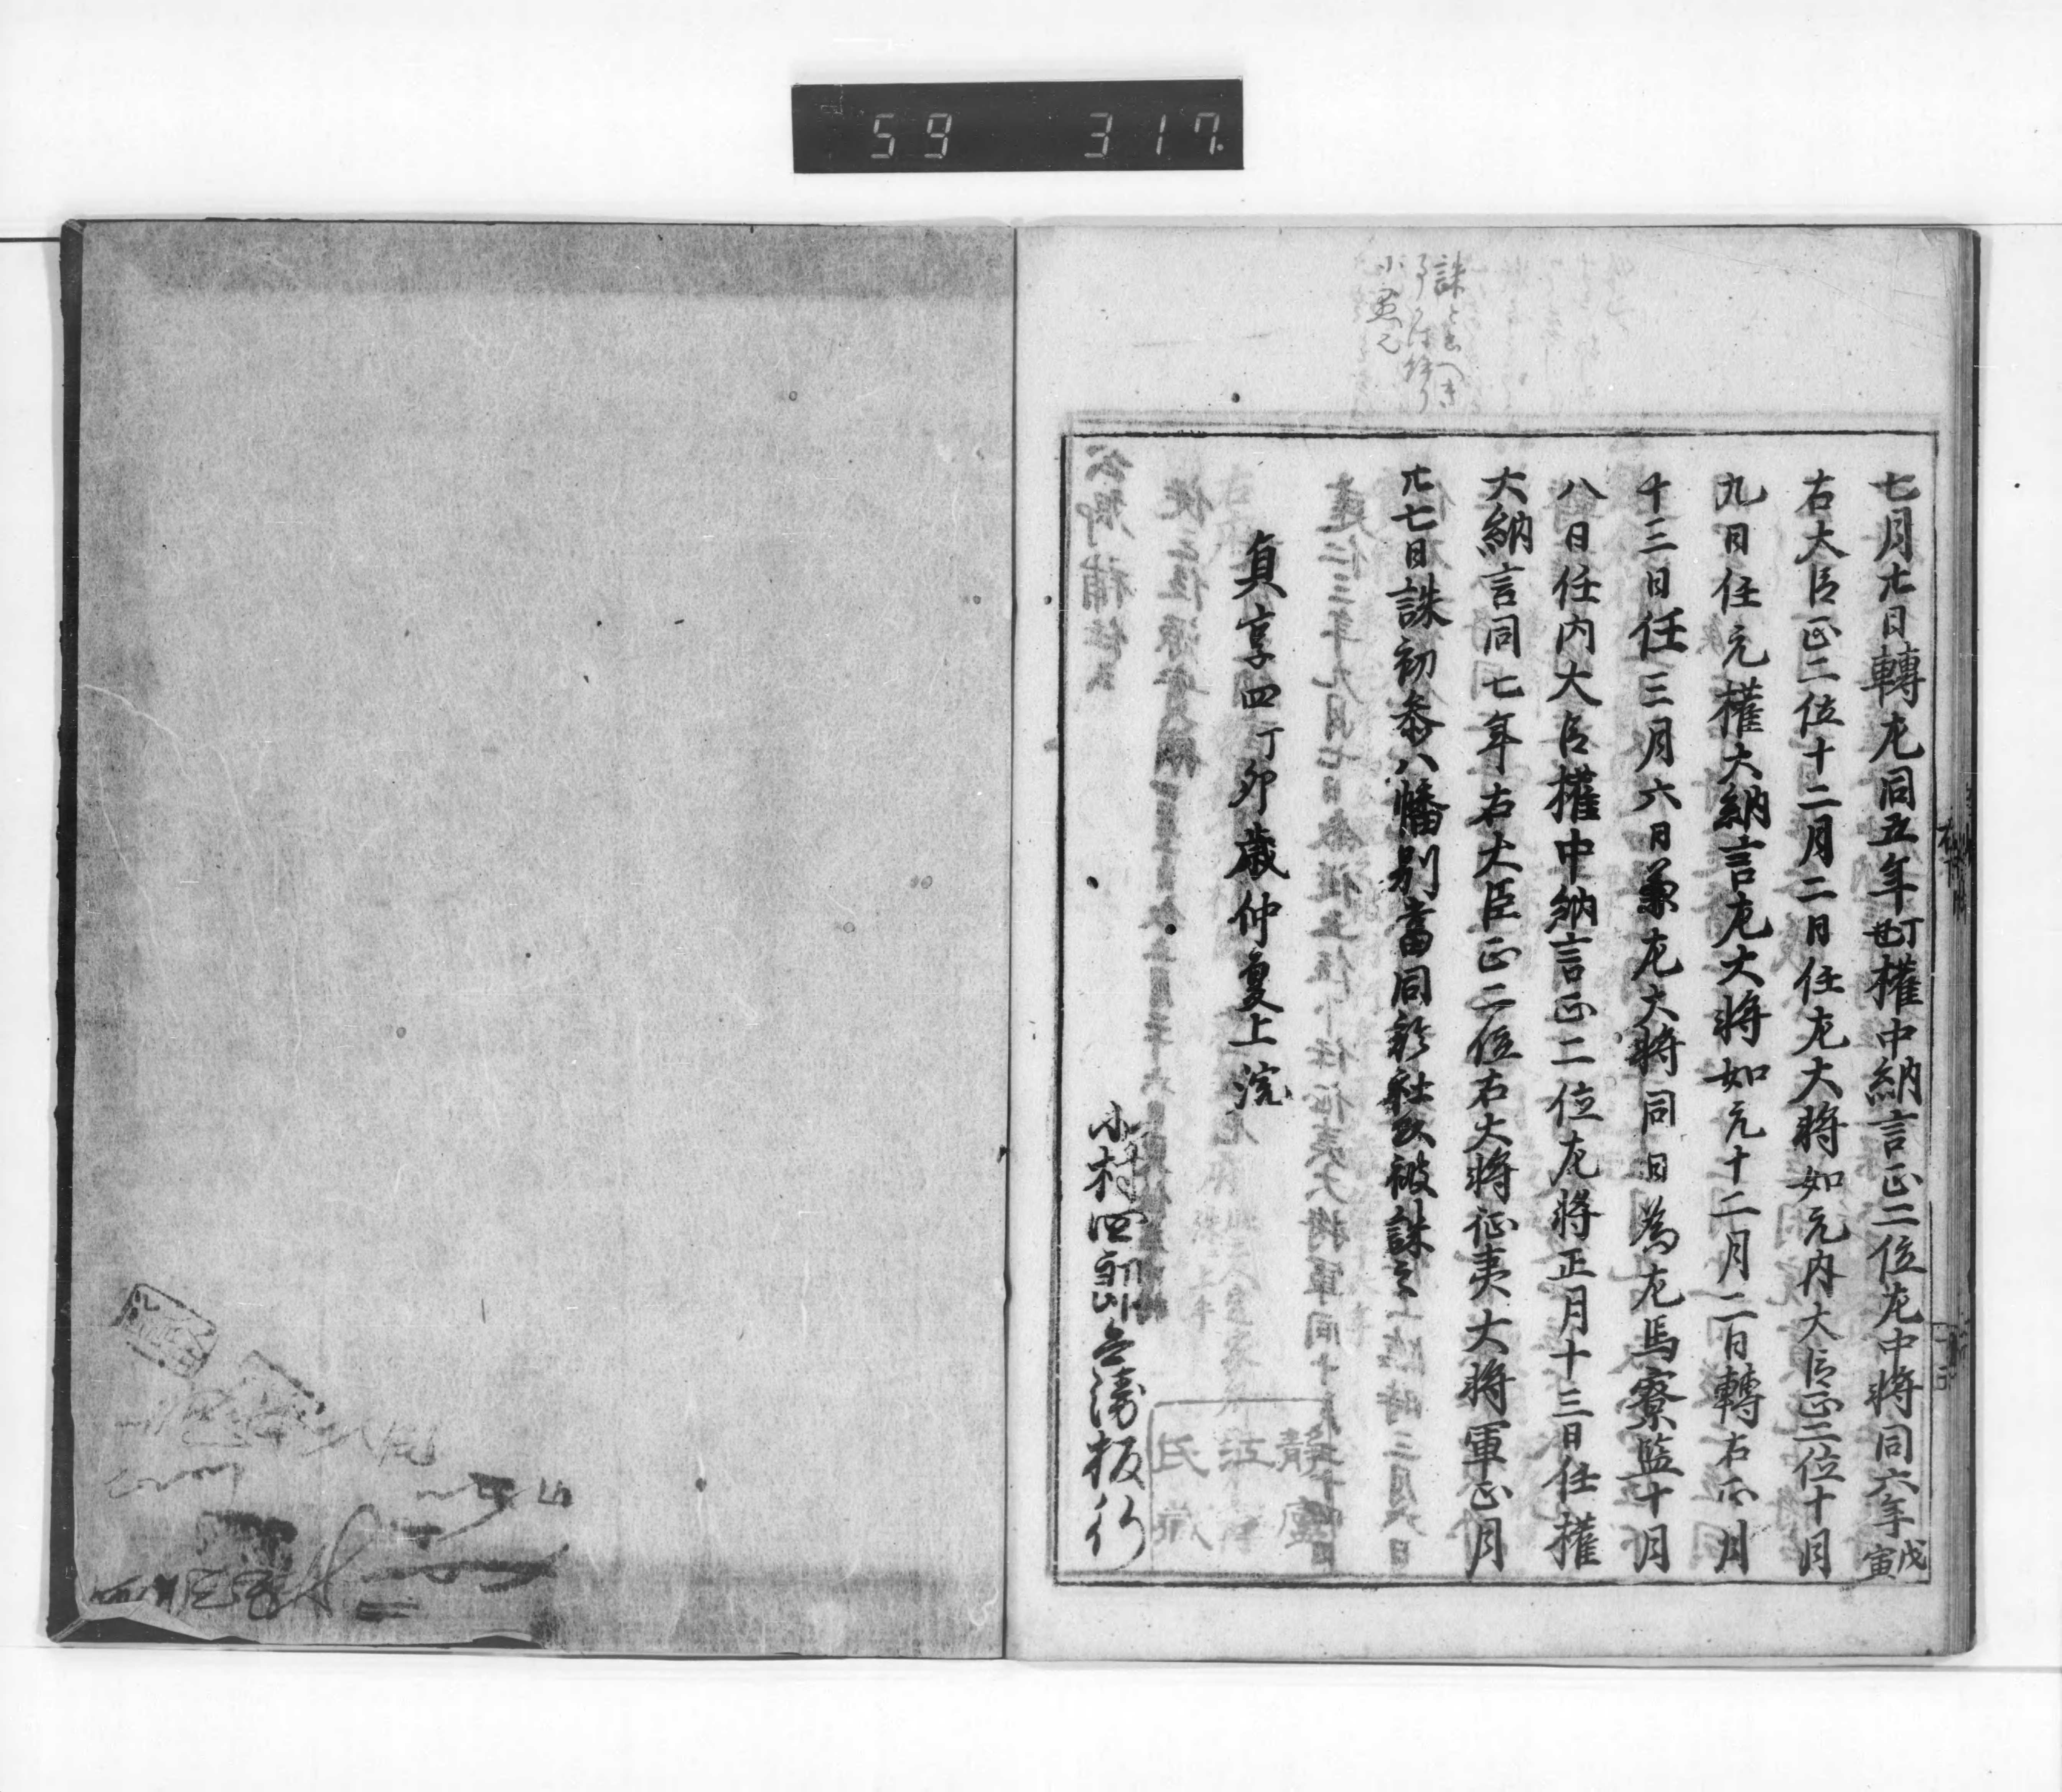 59 317
七月廿日轉左同五年丁丑權中納言正二位左中將同六年戊寅
右大臣正二位十二月二日任左大將如元内大臣正二位十月
九日任元權大納言左大將如元十二月二日轉右正月
十三日任三月六日兼左大將同日為左馬寮監十月
八日任内大臣權中納言正二位左將正月十三日任權
大納言同七年右大臣正二位右大將征夷大將軍正月
廿七日誅初参八幡別當同於社頭被誅之
貞享四丁卯歳仲夏上浣
小村四郎兵衛板行